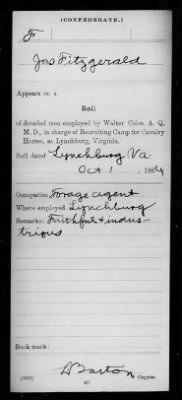 (CONFEDERATE.)
F
Jas Fitzgerald
Appears on a
Roll
of detailed men employed by Walter Coles, A. Q.
M. D., in charge of Recruiting Camp for Cavalry
Horses, at Lynchburg, Virginia.
Roll dated Lynchburg Va.
Oct 1, 1864
Occupation Forage agent
Where employed Lynchburg
Remarks: Faithful + indus-
trious
Book mark:
Barton
Copyist.